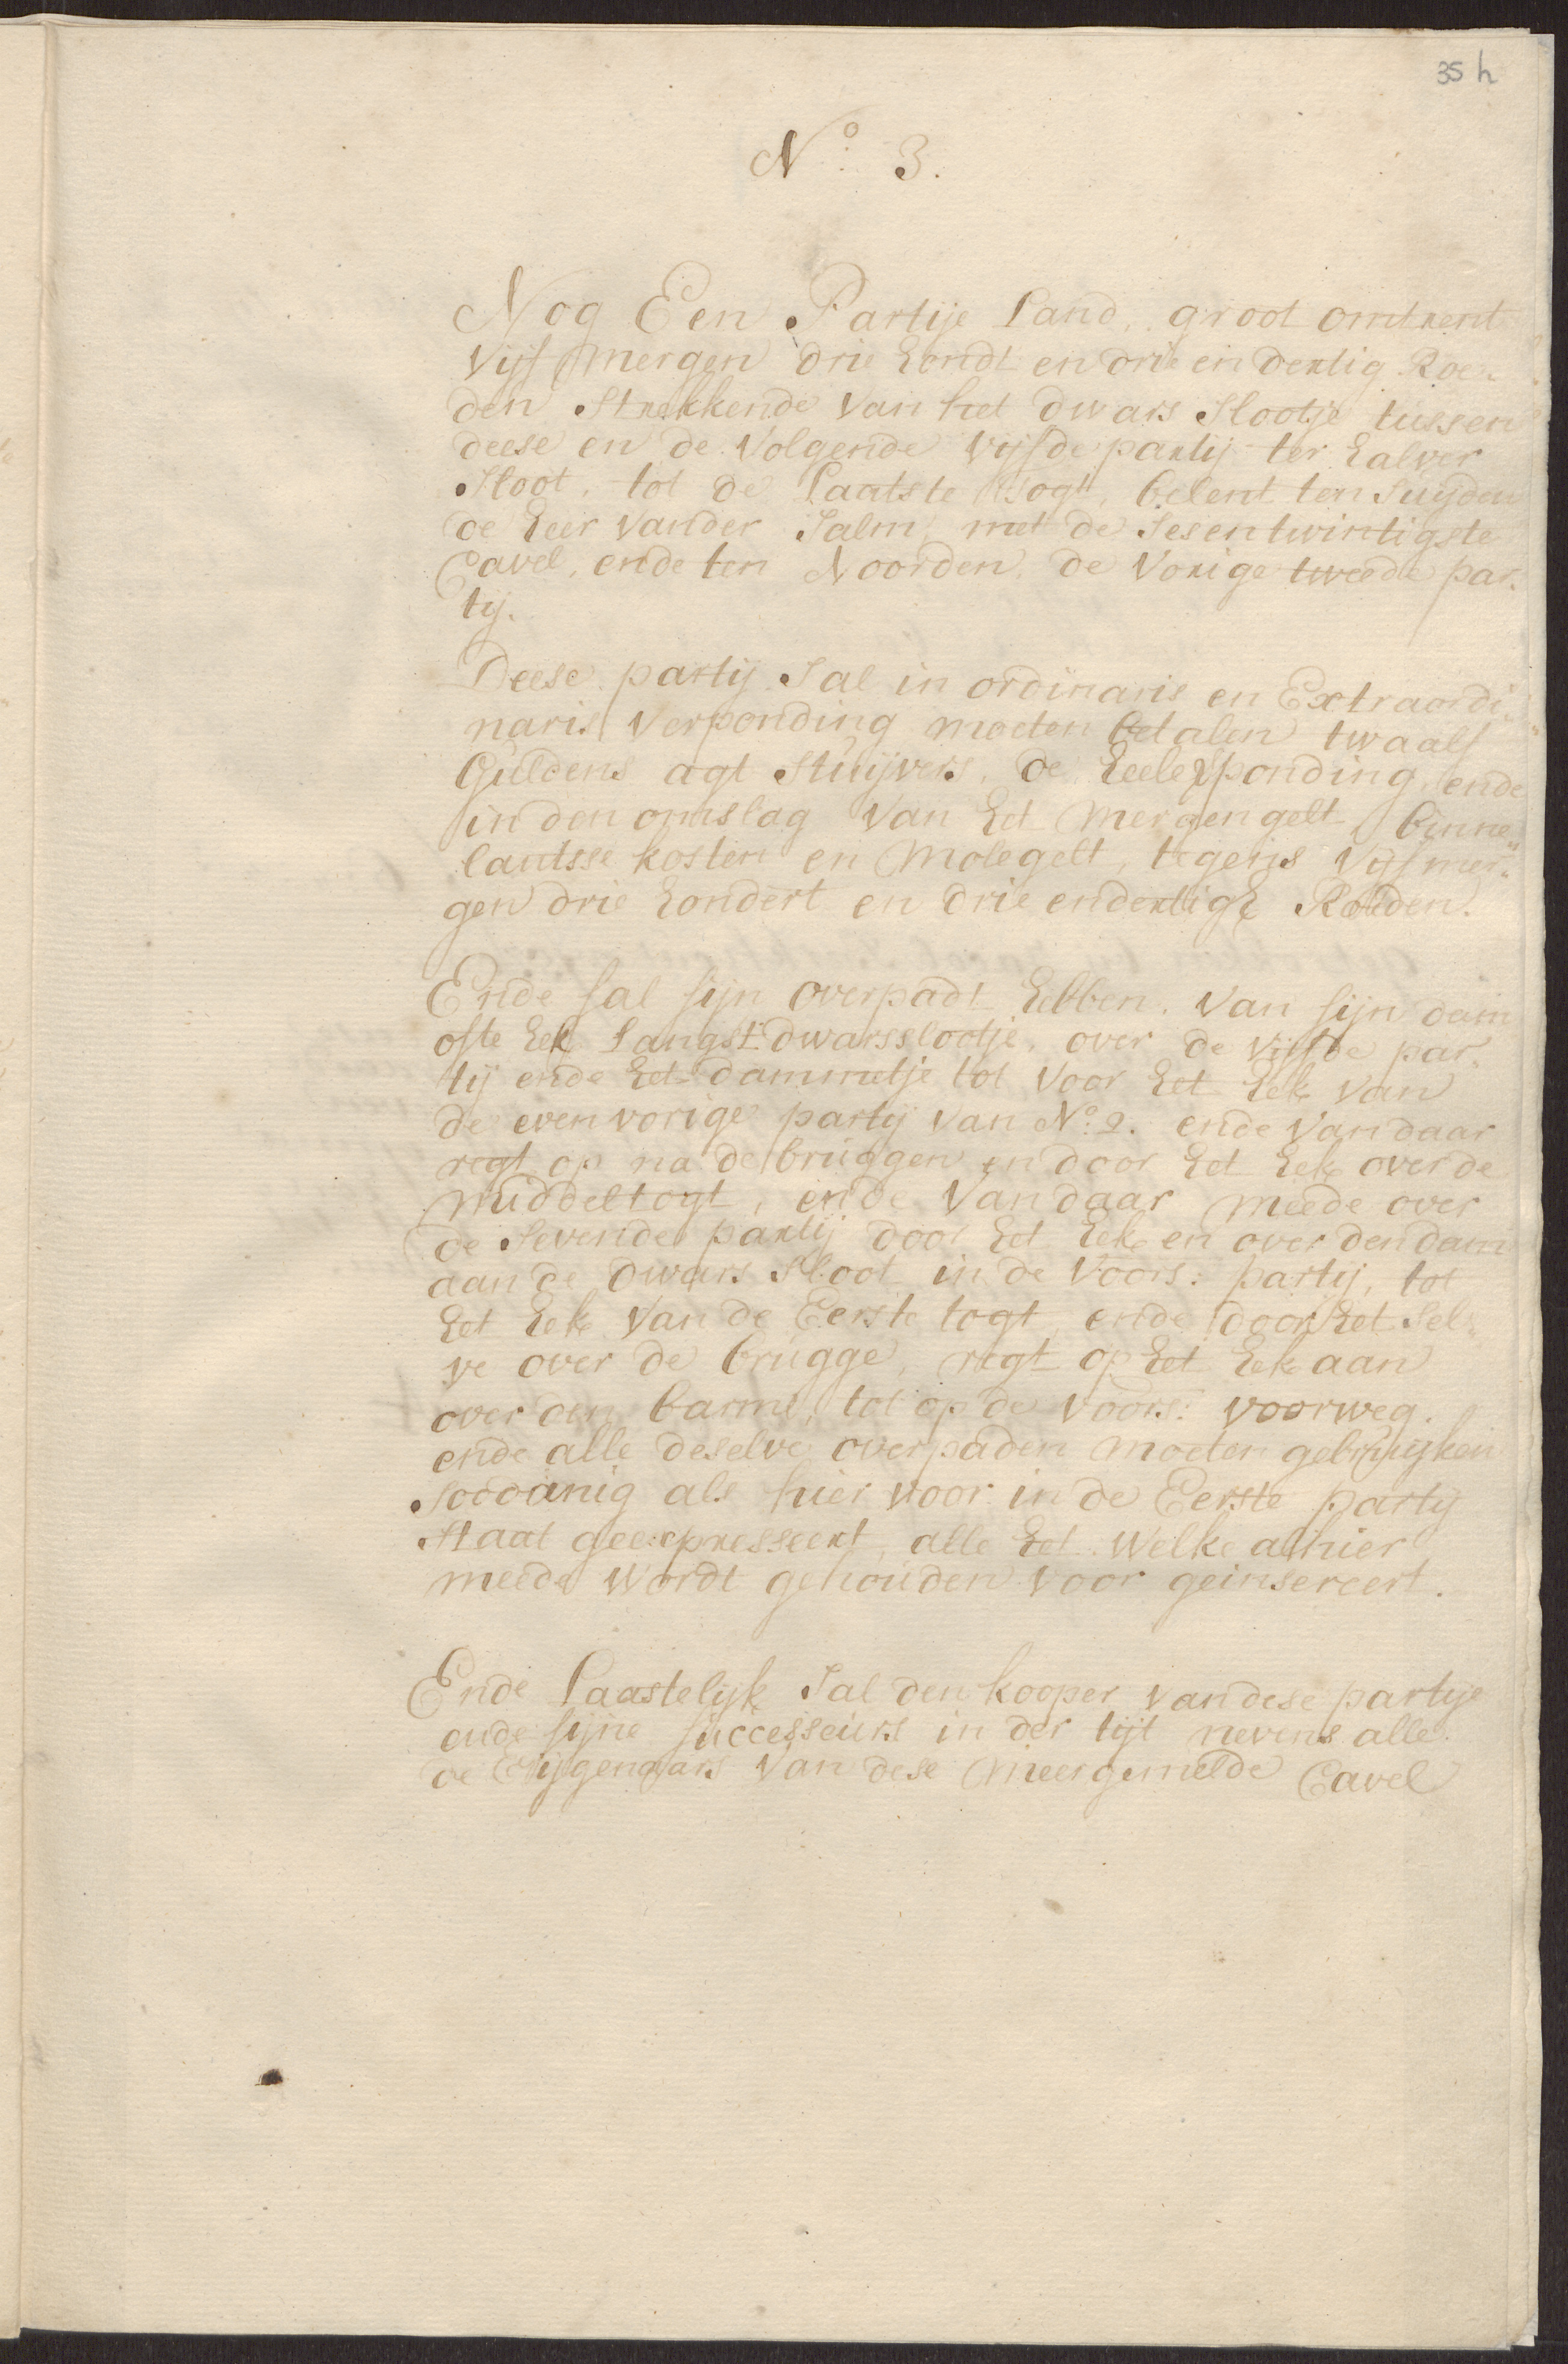 35 h
No. 3.
Nog Een Partije Land, groot omtrent
Vijf mergen drie hondt en drie en dertig Roe„
den Strekkende van het dwars Slootje tussen
deese en de Volgende Vijfde partij ter halver
Sloot, tot de Laatste togt, belent ten Suijden
de heer vander Salm, met de Sesentwintigste
Cavel, ende ten Noorden, de Vorige tweede par„
tij.
Deese partij Sal in ordinaris en Extraordi„
naris Verponding moeten betalen twaalf
Guldens agt Stuijvers, de heele Xponding, ende
in den omslag van het mergengelt, binne„
lantsse kosten en Molegelt, tegens Vijf mer„
gen drie hondert en drie endertigh Roeden.
Ende sal sijn overpadt hebben, van sijn dam
ofte hek Langst dwarsslootje, over de vijfde par„
tij ende het dammetje tot voor het hek van
de even vorige partij van No. 2. ende Vandaar
regt op na de bruggen en door het hek over de
middeltogt, ende Vandaar meede over
de Sevende partij door het hek en over den dam
aan de dwars Sloot in de voors: partij, tot
het hek van de Eerste togt, ende door het Sel„
ve over de brugge, regt op het hek aan
over den barm, tot op de voors: voorweg.
ende alle deselve overpaden moeten gebruijken
Soodanig als hier voor in de Eerste partij
Staat geexpresseert, alle het Welke alhier
meede Wordt gehouden voor geinsereert.
Ende Laastelijk Sal den kooper van dese partije
ende sijne successeurs in der tijt nevens alle
de Eijgenaars van dese meergemelde Cavel